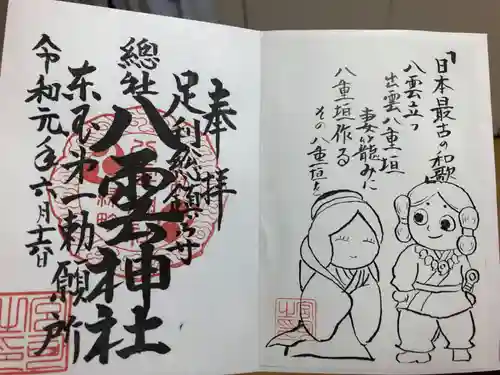 「日本最古の和歌」
八雲立つ
出雲八重垣
妻籠みに
八重垣作る
その八重垣を
奉拝
足利総鎮守
總社
八雲神社
東国第一勅願所
令和元年六月十六日